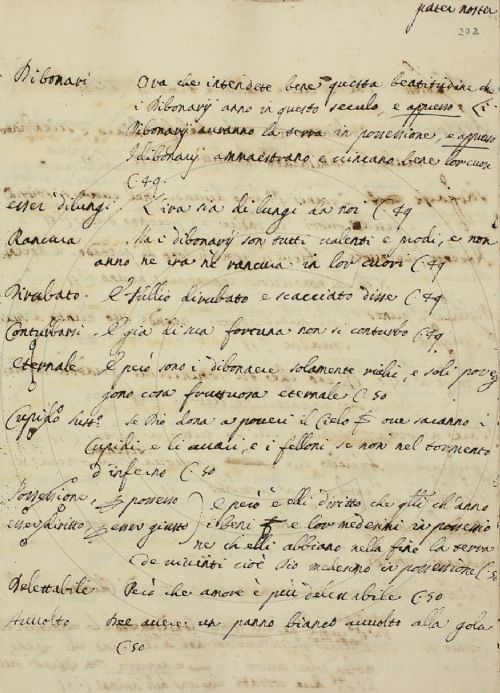 pater noster
202
Dibonari. Ora che intendete bene questa beatitudine che
i Dibonarÿ anno in questo seculo, e appresso i
Dibonarÿ auranno la terra in possessione, e appresso
I dibonarÿ ammaestrano e uincano bene lor cuori
C. 49.
esser di lungi. L'ira sia di lungi da noi C. 49
Rancura Ma i dibonarÿ son tutti ualenti e prodi, e non
anno ne ira ne rancura in lor cuori C. 49
Dirubato. E Tullio dirubato e scacciato disse C. 49
Conturbarsi. E già di sua fortuna non si conturbò C. 49
eternale E però sono i dibonarie solamente richi, e soli posseg
gono cosa fruttuosa eternale C. 50
Cupido sust.o se Dio dona a poueri il Cielo oue saranno i
Cupidi, e li auari, e i felloni se non nel tormento
d'inferno C. 50
Possessione, possesso e però è elli diritto che ch'anno
esser diritto, esser giusto i beni e lor medesimi in possessio
ne ch'elli abbiano nella fine la terra
de uiuenti cioè Dio medesimo in possessione C. 50
Delettabile Però che amore è più delettabile C. 50
Auuolto Dee auere un panno bianco auuolto alla gola
C. 50